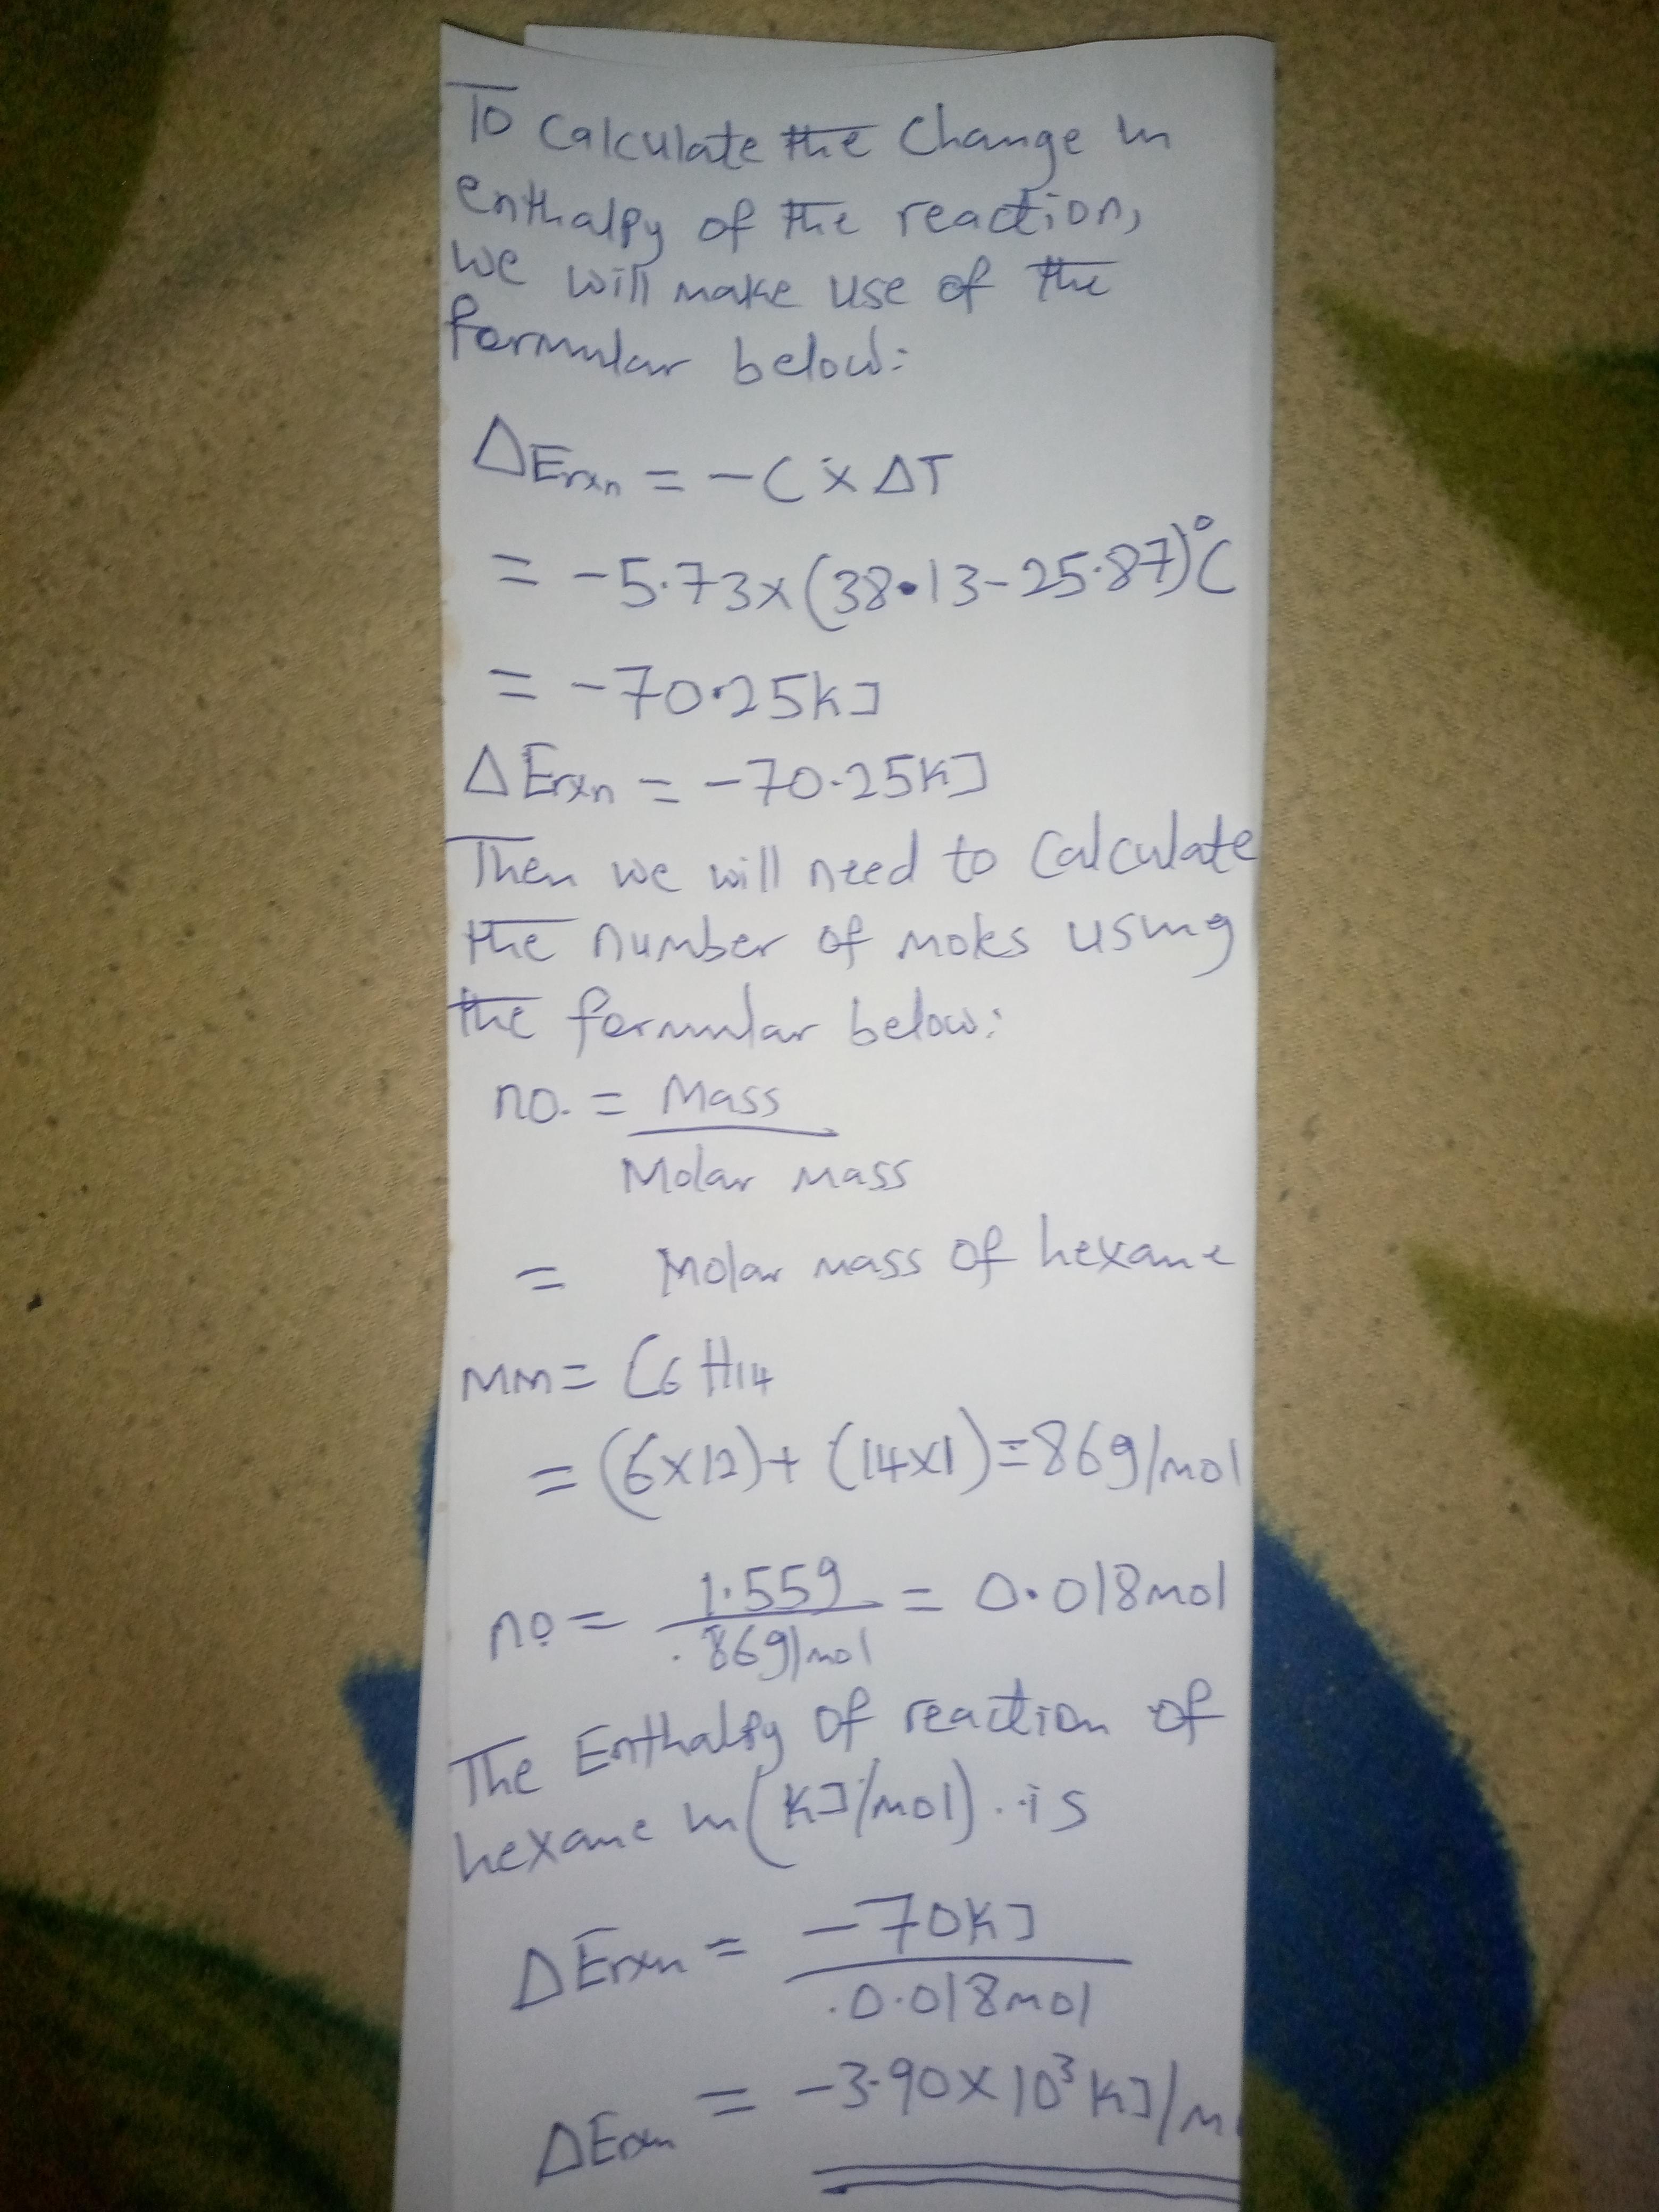 To calculate the change in
enthalpy of the reaction,
we will make use of the
formular below:
ΔErxn = -C × ΔT
= -5.73×(38.13-25.87)°C
= -70.25kJ
ΔErxn = -70.25kJ
Then we will need to calculate
the number of moles using
the formular below:
no. = Mass
Molar mass
= Molar mass of hexane
MM = C6H14
= (6×12)+(14×1)=86g/mol
no = 1.55g = 0.018mol
86g/mol
The Enthalpy of reaction of
hexane in (kJ/mol). is
ΔErxn = -70kJ
0.018mol
ΔErxn = -3.90×10³ kJ/m